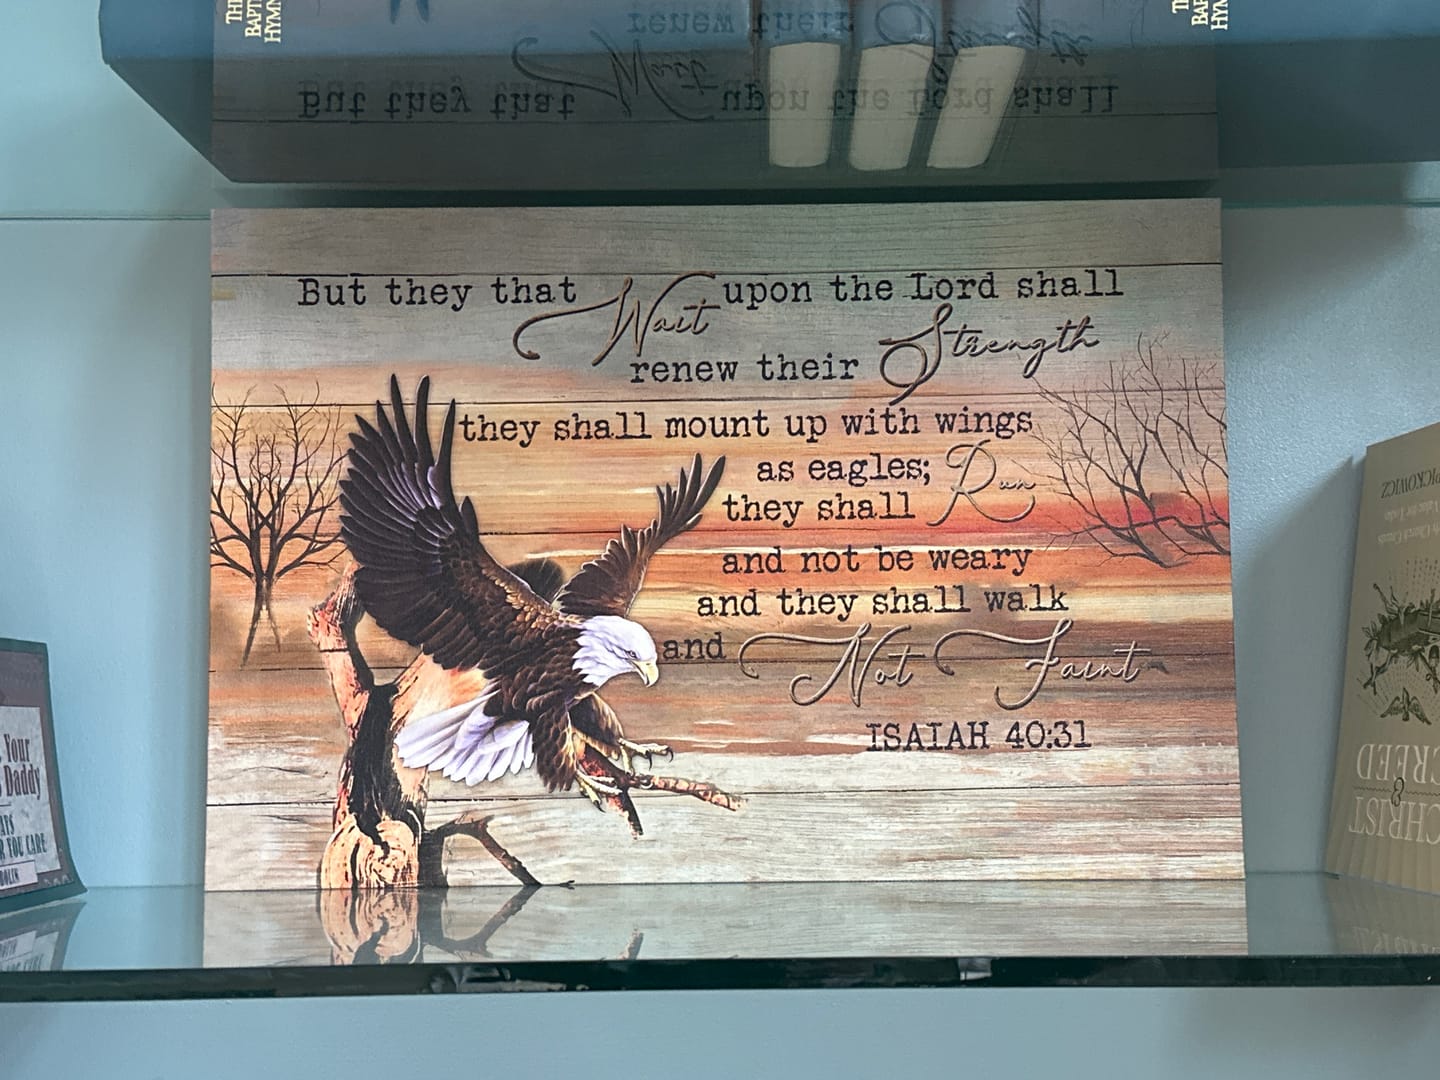 THE
BAPT
HYMN
But they that Wait upon the Lord shall
renew their Strength
they shall mount up with wings
as eagles;
they shall Run
and not be weary
and they shall walk
and Not Faint
ISAIAH 40:31
Your
Daddy
YOU CARE
PICKOWICZ
CHRIST
&
CREED